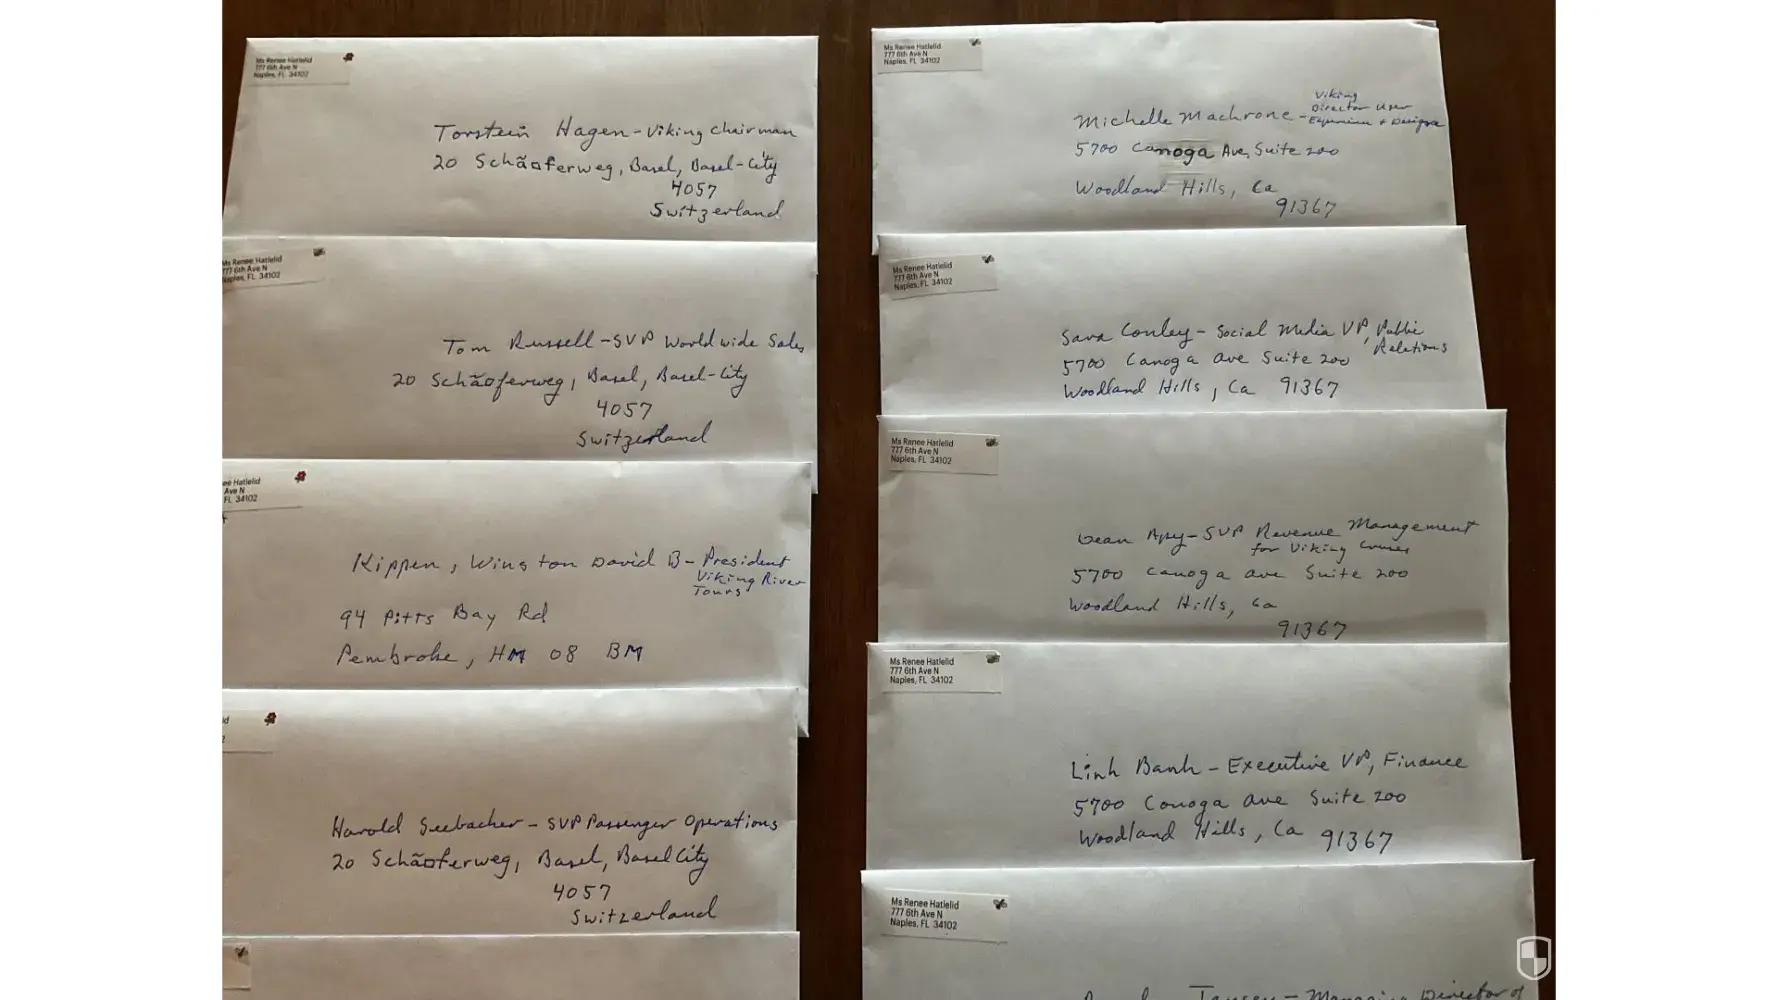 Ms Renee Hatlelid
777 6th Ave N
Naples, FL 34102
Torstein Hagen - Viking Chairman
20 Schãoferweg, Basel, Basel-City
4057
Switzerland
Ms Renee Hatlelid
777 6th Ave N
Naples, FL 34102
Tom Russell - SVP Worldwide Sales
20 Schãoferweg, Basel, Basel-City
4057
Switzerland
ee Hatlelid
Ave N
FL 34102
Kippen, Winston David B - President
Viking River
Tours
94 Pitts Bay Rd
Pembroke, HM 08 BM
Harold Seebacher - SVP Passenger Operations
20 Schãoferweg, Basel, Basel City
4057
Switzerland
Ms Renee Hatlelid
777 6th Ave N
Naples, FL 34102
Viking
Director User
Michelle Machrone -
5700 Canoga Ave, Suite 200
Woodland Hills, Ca
91367
Ms Renee Hatlelid
777 6th Ave N
Naples, FL 34102
Sara Conley - Social Media VP, Public
Relations
5700 Canoga Ave Suite 200
Woodland Hills, Ca 91367
Ms Renee Hatlelid
777 6th Ave N
Naples, FL 34102
Dean Apy - SVP Revenue Management
for Viking
5700 Canoga Ave Suite 200
Woodland Hills, Ca
91367
Ms Renee Hatlelid
777 6th Ave N
Naples, FL 34102
Linh Banh - Executive VP, Finance
5700 Canoga Ave Suite 200
Woodland Hills, Ca 91367
Ms Renee Hatlelid
777 6th Ave N
Naples, FL 34102
Jansen - Managing Director of